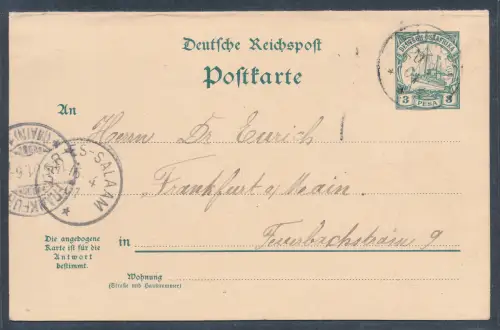 Deutsche Reichspost
Postkarte
DEUTSCH-OSTAFRIKA
3 PESA 3
An
Herrn Dr Eurich
Frankfurt a/Main.
S-SALAAM
FRANKFURT
(MAIN)
Die angebogene
Karte ist für die
Antwort
bestimmt.
in Feuerbachstrasse 9
Wohnung
(Straße und Hausnummer)